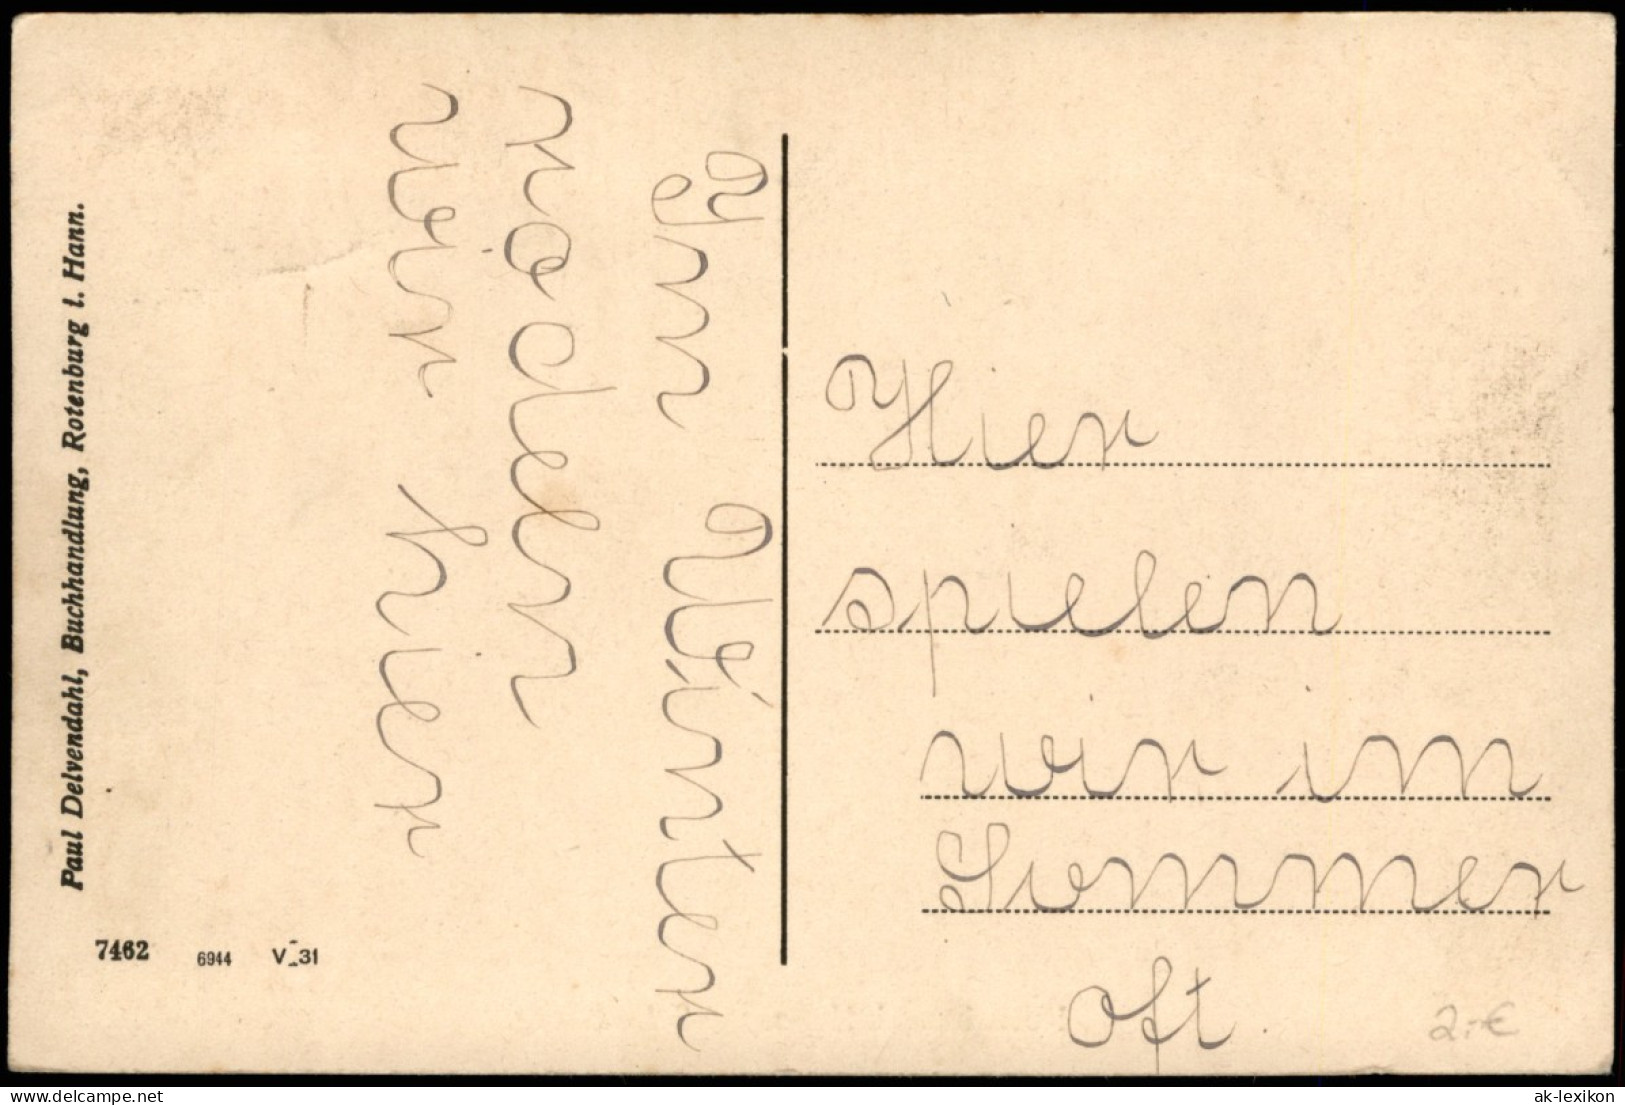 Im Winter
rodeln
wir hier
Hier
spielen
wir im
Sommer
oft.
2.-€
Paul Delvendahl, Buchhandlung, Rotenburg i. Hann.
7462 6944 V_31
hippostcard.com
ak-lexikon